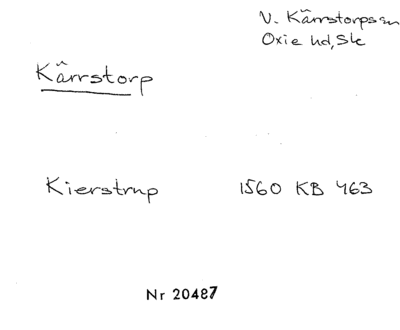 V. Kärrstorps sn
Oxie hd, Sk
Kärrstorp
Kierstrup 1560 KB 463
Nr 20487